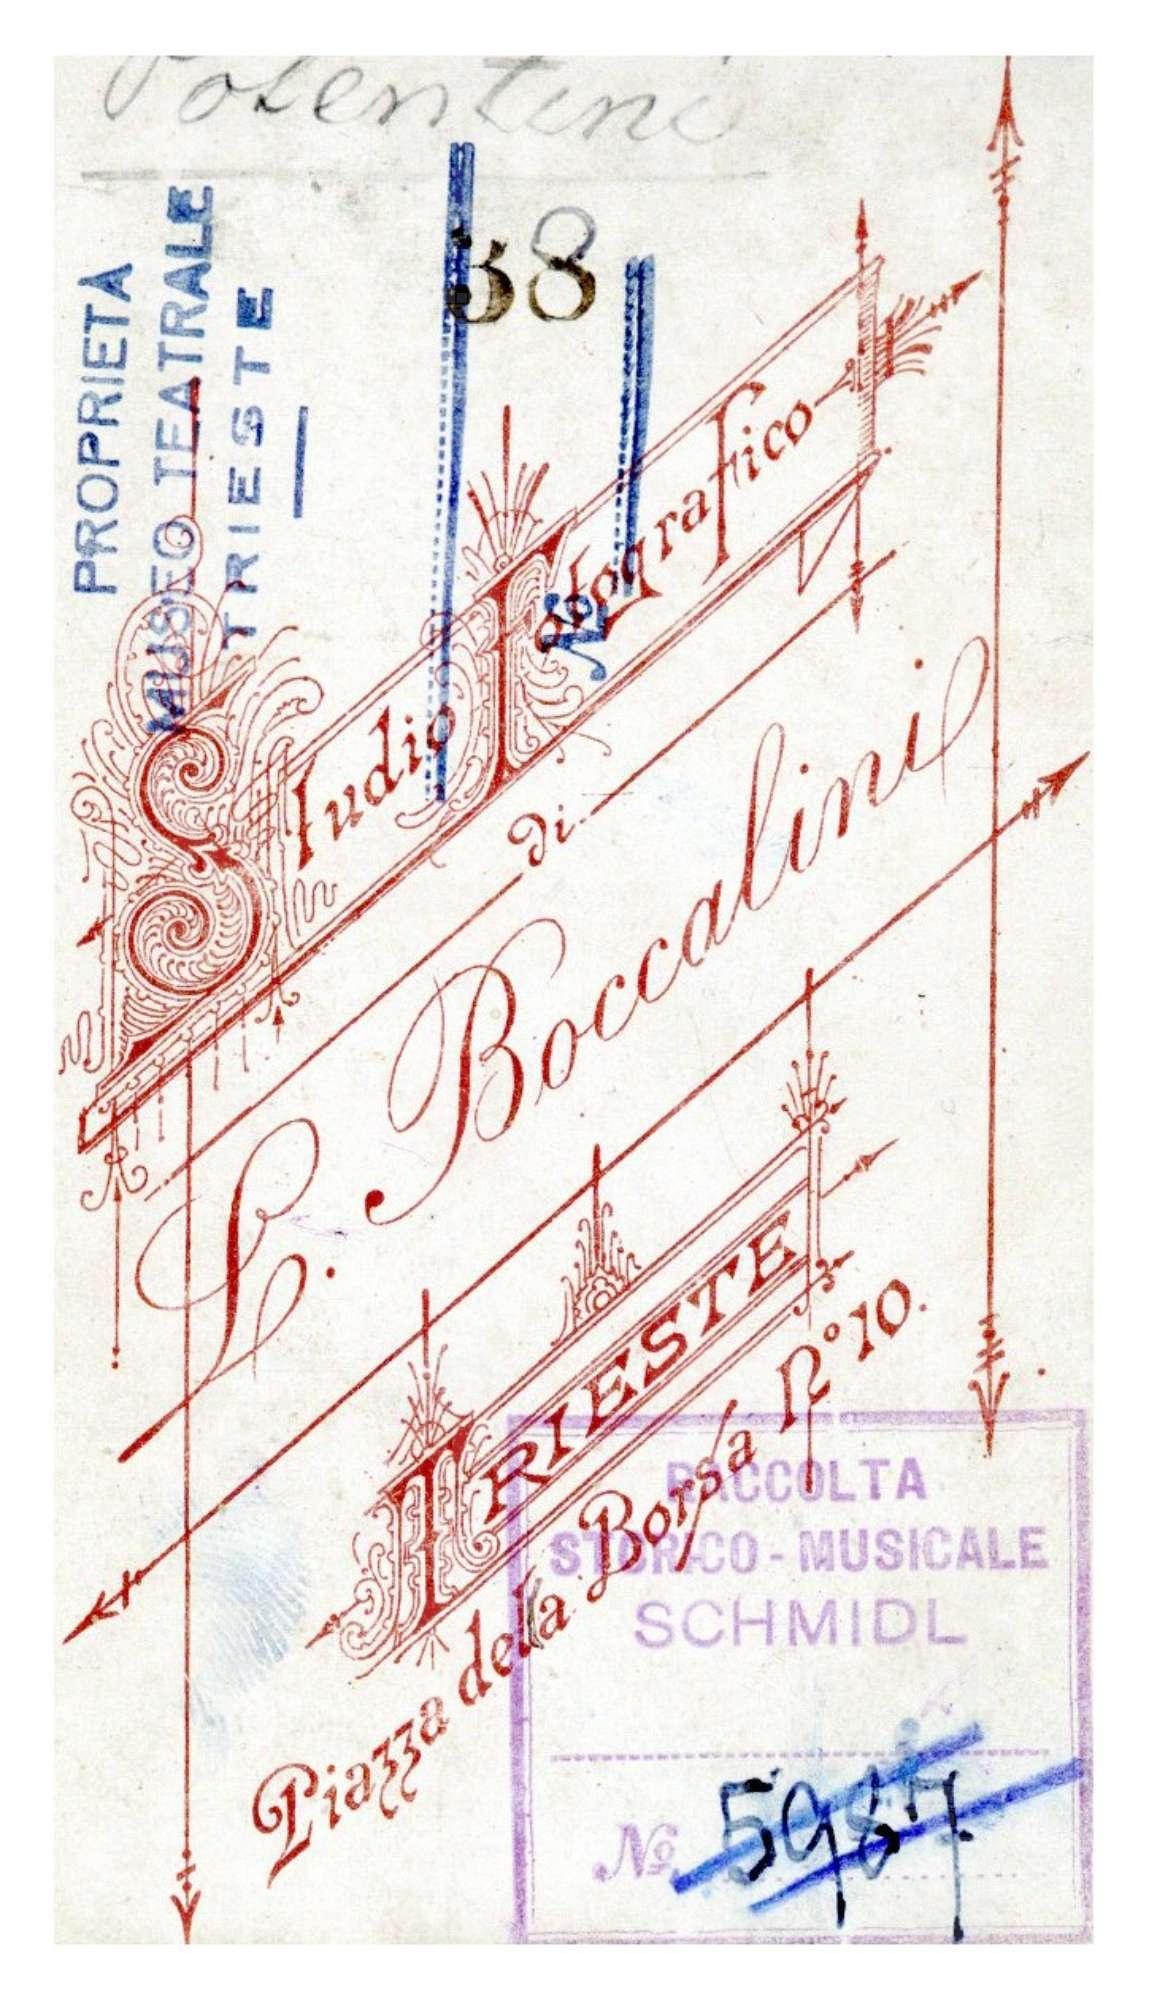 Polentini
PROPRIETÀ
MUSEO TEATRALE
TRIESTE
38
No
Studio Fotografico
di
L. Boccalini
TRIESTE
Piazza della Borsa No 10.
RACCOLTA
STORICO-MUSICALE
SCHMIDL
No 5987